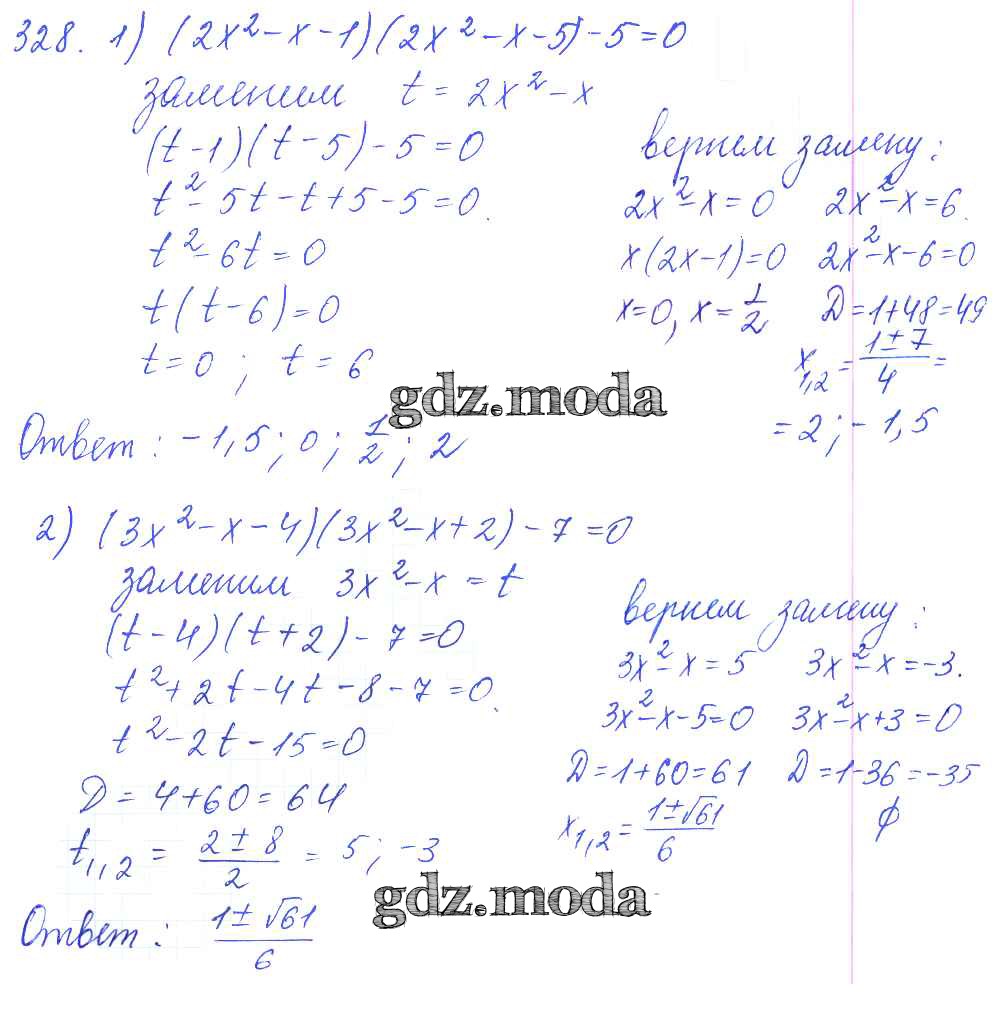 328. 1) (2x² - x - 1)(2x² - x - 5) - 5 = 0
заменим t = 2x² - x
(t - 1)(t - 5) - 5 = 0
t² - 5t - t + 5 - 5 = 0.
t² - 6t = 0
t(t - 6) = 0
t = 0 ; t = 6
вернем замену:
2x² - x = 0 2x² - x = 6.
x(2x - 1) = 0 2x² - x - 6 = 0
x = 0, x = 1/2 D = 1 + 48 = 49
x₁,₂ = (1 ± 7)/4 =
= 2 ; - 1,5
gdz.moda
Ответ : - 1,5 ; 0 ; 1/2 ; 2
2) (3x² - x - 4)(3x² - x + 2) - 7 = 0
заменим 3x² - x = t
(t - 4)(t + 2) - 7 = 0
t² + 2t - 4t - 8 - 7 = 0.
t² - 2t - 15 = 0
D = 4 + 60 = 64
t₁,₂ = (2 ± 8)/2 = 5 ; - 3
вернем замену :
3x² - x = 5 3x² - x = -3.
3x² - x - 5 = 0 3x² - x + 3 = 0
D = 1 + 60 = 61 D = 1 - 36 = -35
x₁,₂ = (1 ± √61)/6 ∅
gdz.moda
Ответ : (1 ± √61)/6